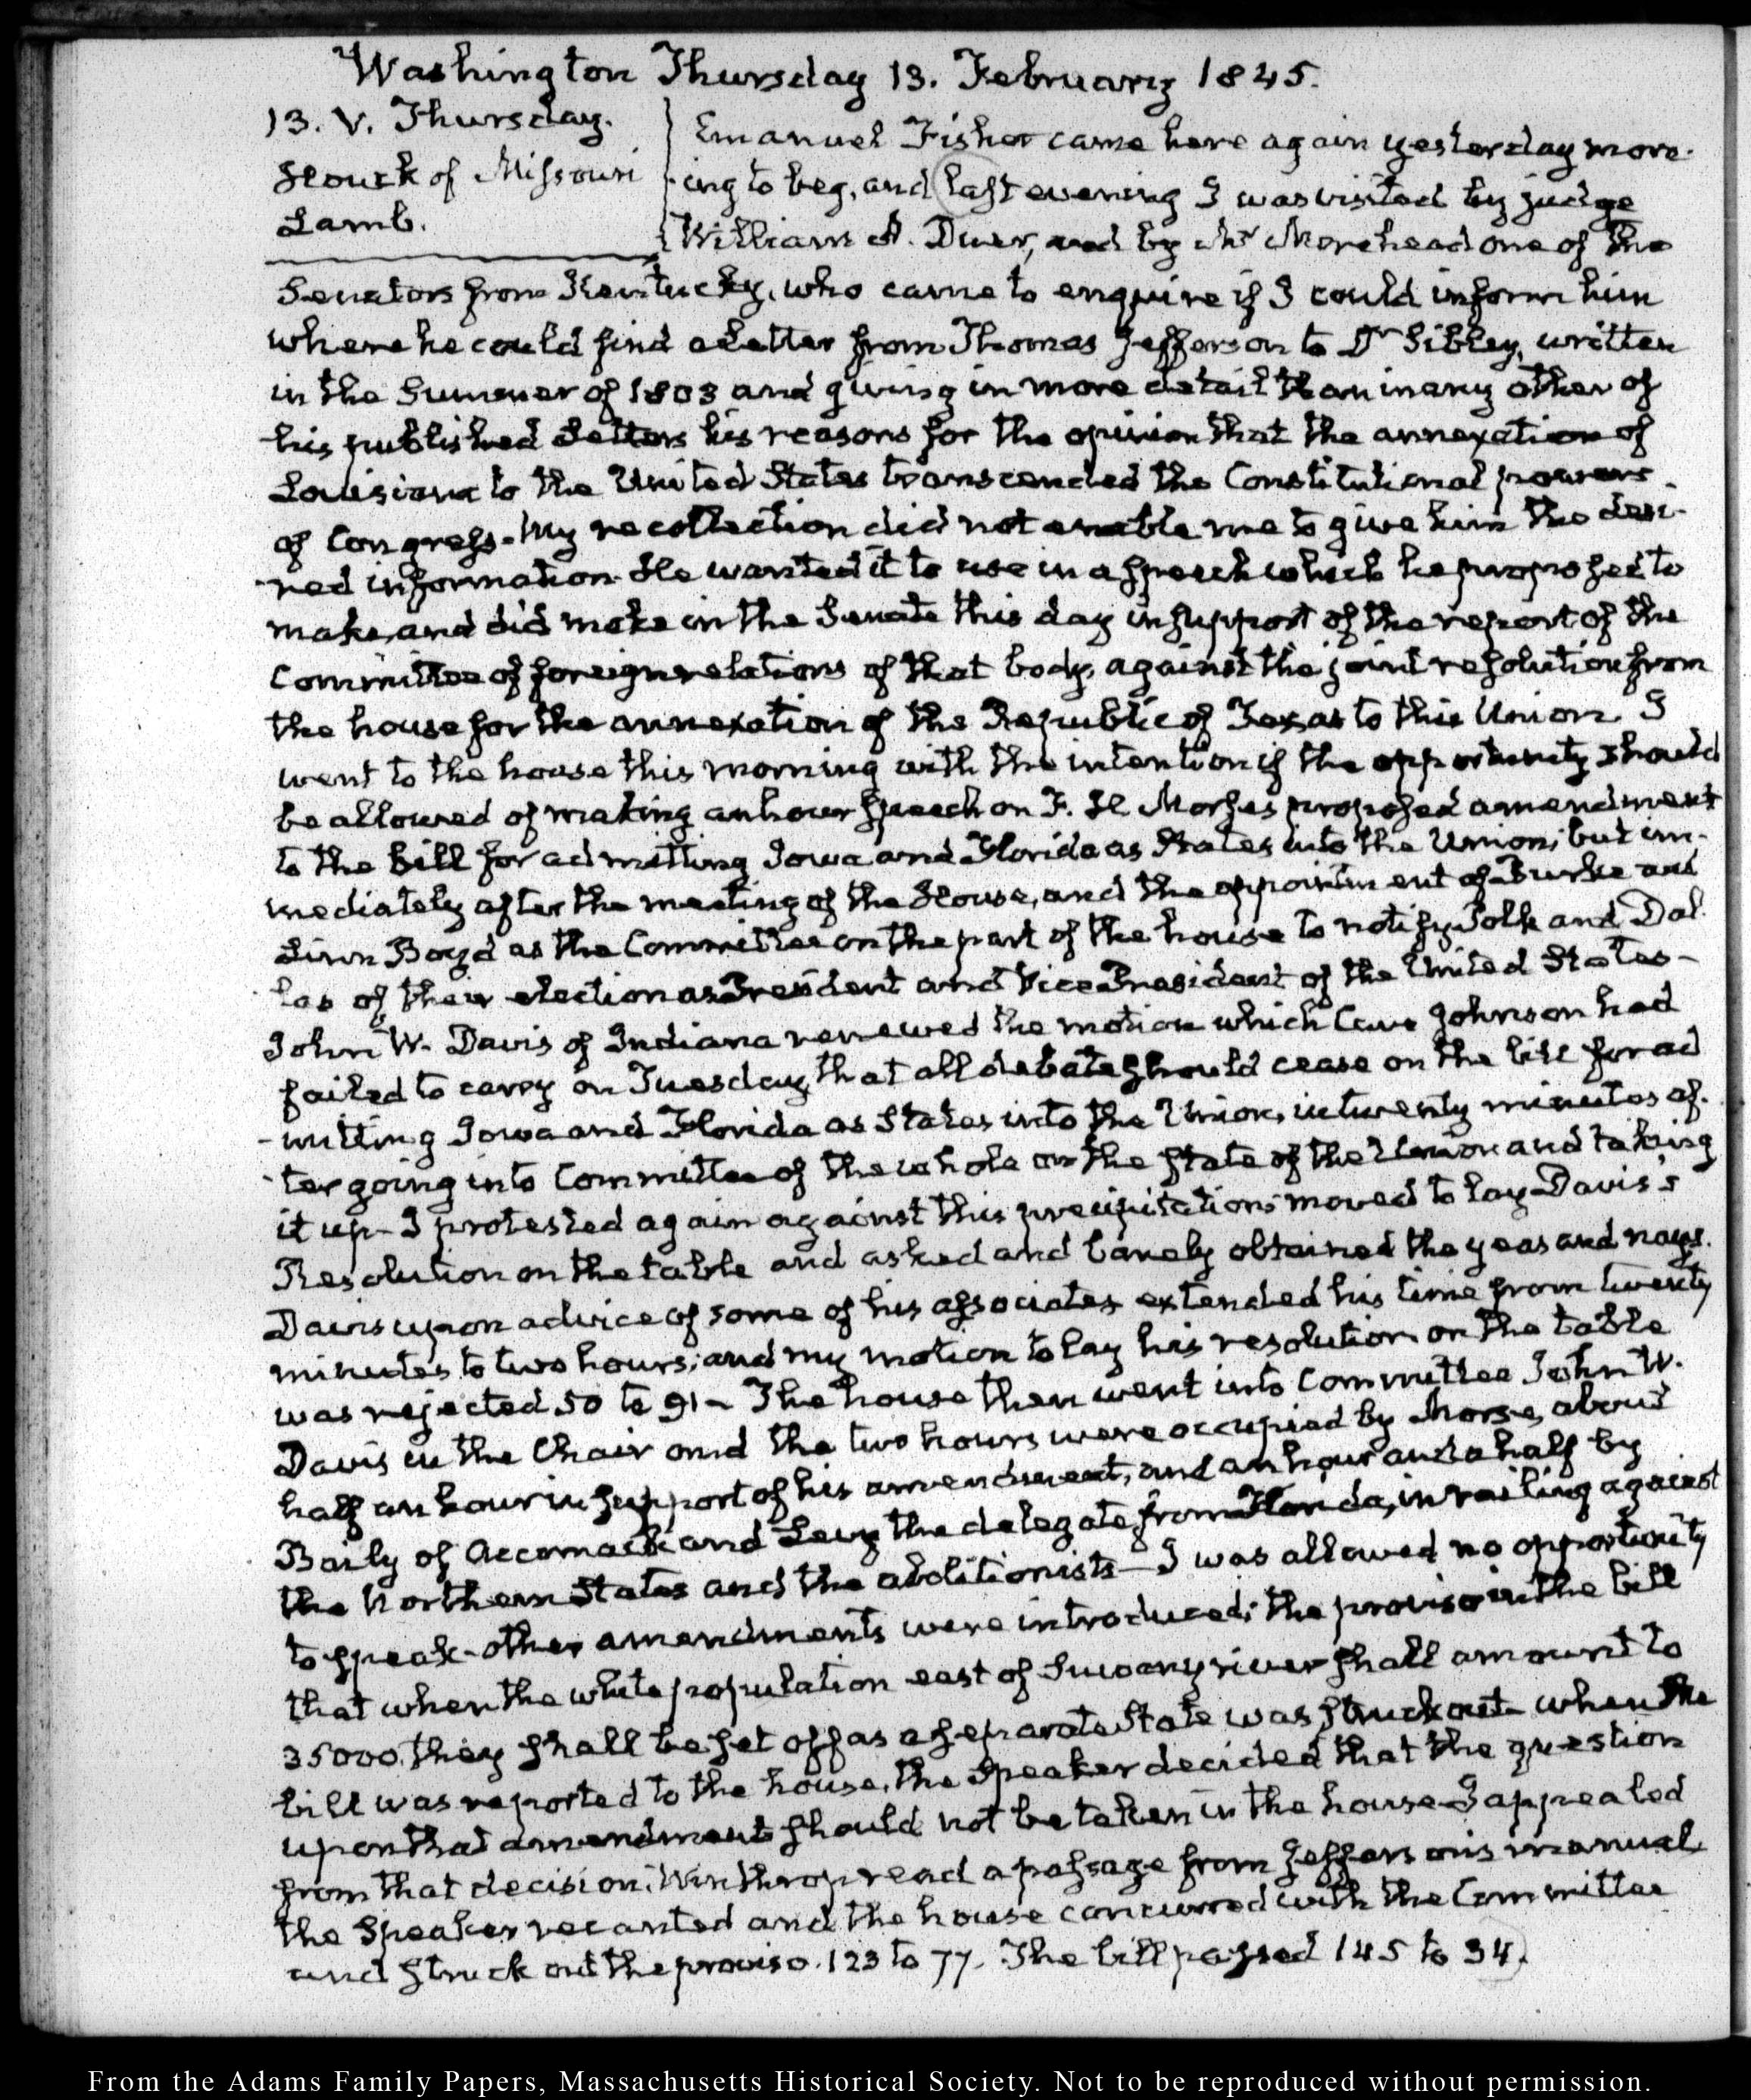 Washington Thursday 13. February 1845.
13. V. Thursday.
Houck of Missouri
Lamb.
Emanuel Fisher came here again yesterday morn-
-ing to beg, and last evening I was visited by judge
William A. Duer, and by Mr Morehead one of the
Senators from Kentucky, who came to enquire if I could inform him
where he could find a letter from Thomas Jefferson to Dr Sibley, written
in the Summer of 1803 and giving in more detail than in any other of
his published letters his reasons for the opinion that the annexation of
Louisiana to the United States transcended the Constitutional powers
of Congress - My recollection did not enable me to give him the desi-
-red information. He wanted it to use in a speech which he proposed to
make, and did make in the Senate this day in support of the report of the
Committee of foreign relations of that body, against the joint resolution from
the house for the annexation of the Republic of Texas to this Union. I
went to the house this morning with the intention if the opportunity should
be allowed of making an hour speech on F. H. Morse's proposed amendment
to the bill for admitting Iowa and Florida as States into the Union; but im-
mediately after the meeting of the House, and the appointment of Burke and
Linn Boyd as the Committee on the part of the house to notify Polk and Dal-
-las of their election as President and Vice President of the United States -
John W. Davis of Indiana renewed the motion which Cave Johnson had
failed to carry on Tuesday, that all debate should cease on the bill for ad
-mitting Iowa and Florida as States into the Union, in twenty minutes af-
-ter going into Committee of the whole on the state of the Union and taking
it up - I protested again against this precipitation; moved to lay Davis's
Resolution on the table and asked and barely obtained the yeas and nays.
Davis upon advice of some of his associates extended his time from twenty
minutes to two hours; and my motion to lay his resolution on the table
was rejected 50 to 91 - The house then went into Committee John W.
Davis in the Chair and the two hours were occupied by Morse, about
half an hour in support of his amendment, and an hour and a half by
Baily of Accomack and Levy the delegate from Florida, in railing against
the Northern States and the abolitionists - I was allowed no opportunity
to speak - other amendments were introduced; the proviso in the bill
that when the white population east of Suwany river shall amount to
35000, they shall be set off as a separate State was struck out - when the
bill was reported to the house, the Speaker decided that the question
upon that amendment should not be taken in the house - I appealed
from that decision; Winthrop read a passage from Jefferson's manual
the Speaker recanted and the house concurred with the Committee
and struck out the proviso. 123 to 77. The bill passed 145 to 34.
From the Adams Family Papers, Massachusetts Historical Society. Not to be reproduced without permission.